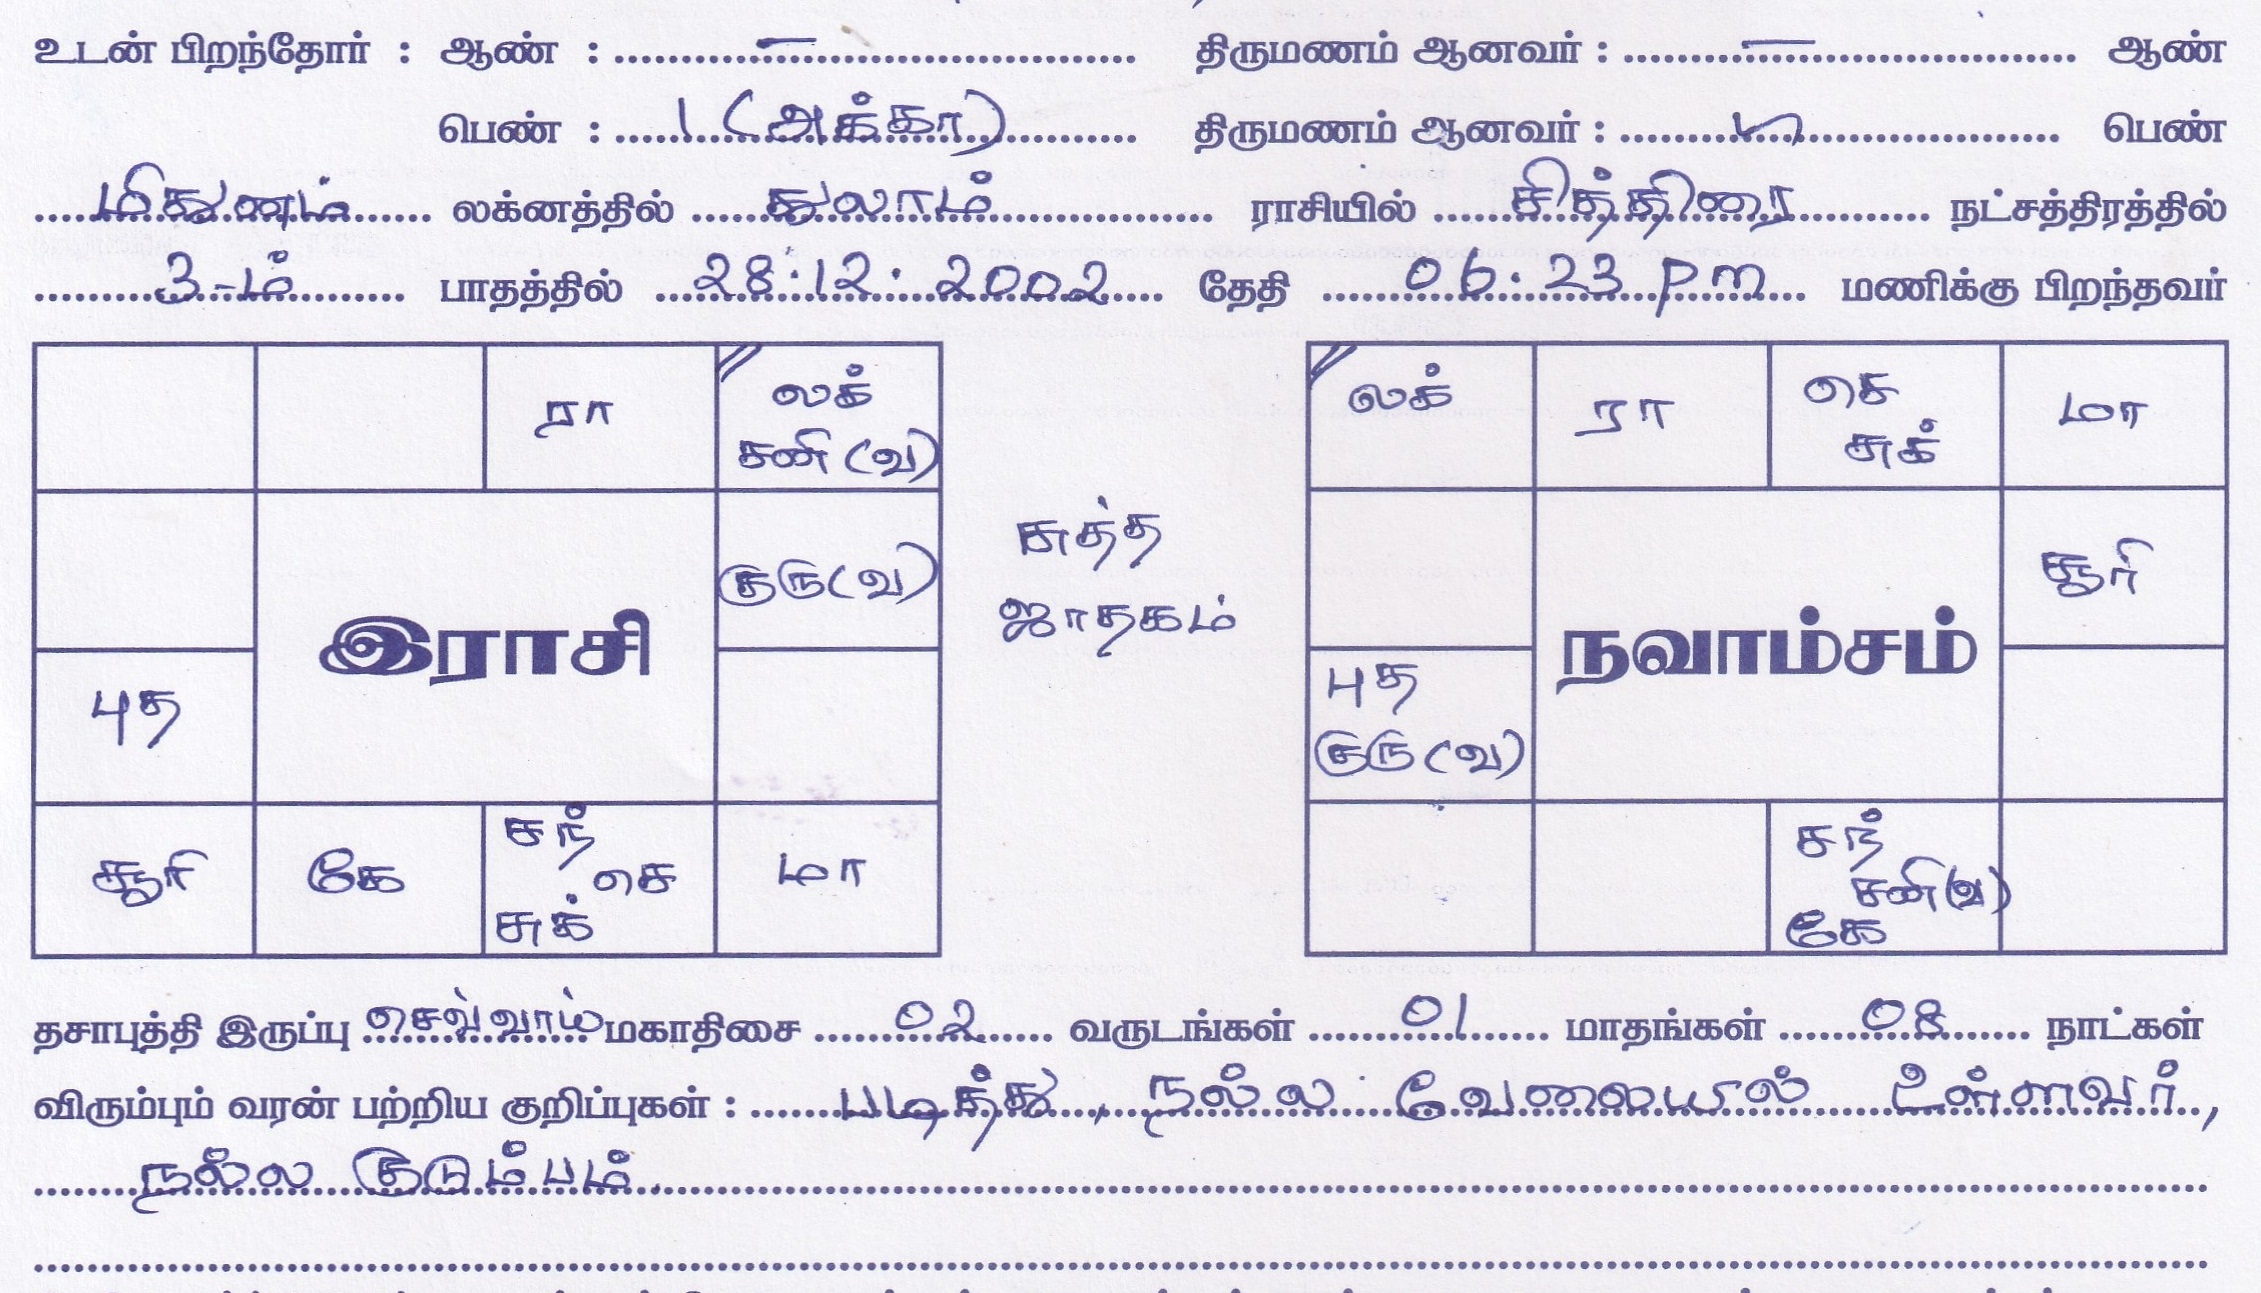 உடன் பிறந்தோர் : ஆண் : ..... – ..... திருமணம் ஆனவர் : ..... – ..... ஆண்
பெண் : ..... 1 (அக்கா) ..... திருமணம் ஆனவர் : ..... பெண்
மிதுனம் லக்னத்தில் துலாம் ராசியில் சித்திரை நட்சத்திரத்தில்
3-ம் பாதத்தில் 28.12.2002 தேதி 06.23 pm மணிக்கு பிறந்தவர்
ரா
லக்
சனி (வ)
குரு (வ)
இராசி
புத
சூரி
கே
சந்
செ
சுக்
மா
சுத்த
ஜாதகம்
லக்
ரா
செ
சுக்
மா
சூரி
நவாம்சம்
புத
குரு (வ)
சந்
சனி (வ)
கே
தசாபுத்தி இருப்பு செவ்வாய் மகாதிசை 02 வருடங்கள் 01 மாதங்கள் 08 நாட்கள்
விரும்பும் வரன் பற்றிய குறிப்புகள் : படித்து, நல்ல வேலையில் உள்ளவர்,
நல்ல குடும்பம்.